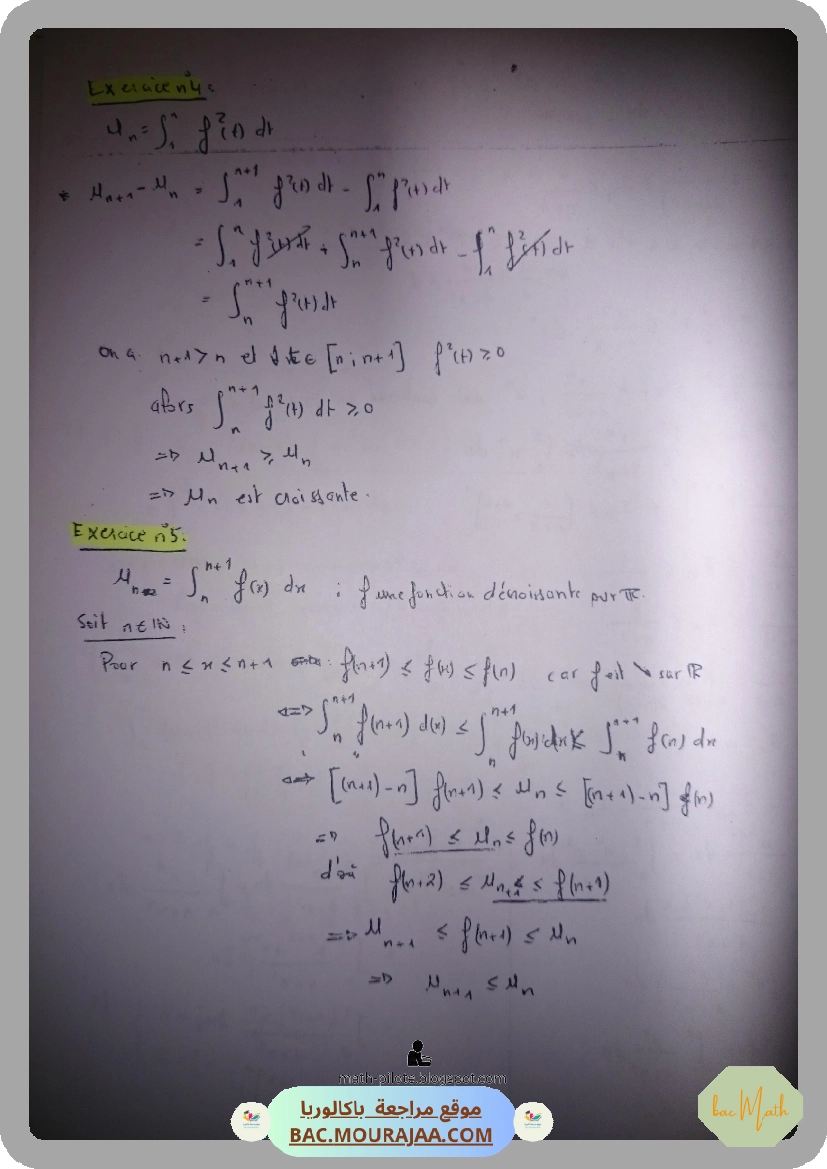 Exercice n°4:
Un = ∫₁ⁿ f²(t) dt
* Un+1 - Un = ∫₁ⁿ⁺¹ f²(t) dt - ∫₁ⁿ f²(t) dt
= ∫₁ⁿ f²(t) dt + ∫ₙⁿ⁺¹ f²(t) dt - ∫₁ⁿ f²(t) dt
= ∫ₙⁿ⁺¹ f²(t) dt
on a n+1 > n et ∀t ∈ [n ; n+1] f²(t) ≥ 0
alors ∫ₙⁿ⁺¹ f²(t) dt ≥ 0
=> Un+1 ≥ Un
=> Un est croissante.
Exercice n°5:
Un = ∫ₙⁿ⁺¹ f(x) dx ; f une fonction décroissante sur ℝ.
Soit n ∈ ℕ :
Pour n ≤ x ≤ n+1 : f(n+1) ≤ f(x) ≤ f(n) car f est ↘ sur ℝ
<=> ∫ₙⁿ⁺¹ f(n+1) d(x) ≤ ∫ₙⁿ⁺¹ f(x) dx ≤ ∫ₙⁿ⁺¹ f(n) dx
<=> [(n+1)-n] f(n+1) ≤ Un ≤ [(n+1)-n] f(n)
=> f(n+1) ≤ Un ≤ f(n)
d'où f(n+2) ≤ Un+1 ≤ f(n+1)
=> Un+1 ≤ f(n+1) ≤ Un
=> Un+1 ≤ Un
math-pilote.blogspot.com
موقع مراجعة باكالوريا
BAC.MOURAJAA.COM
bac Math